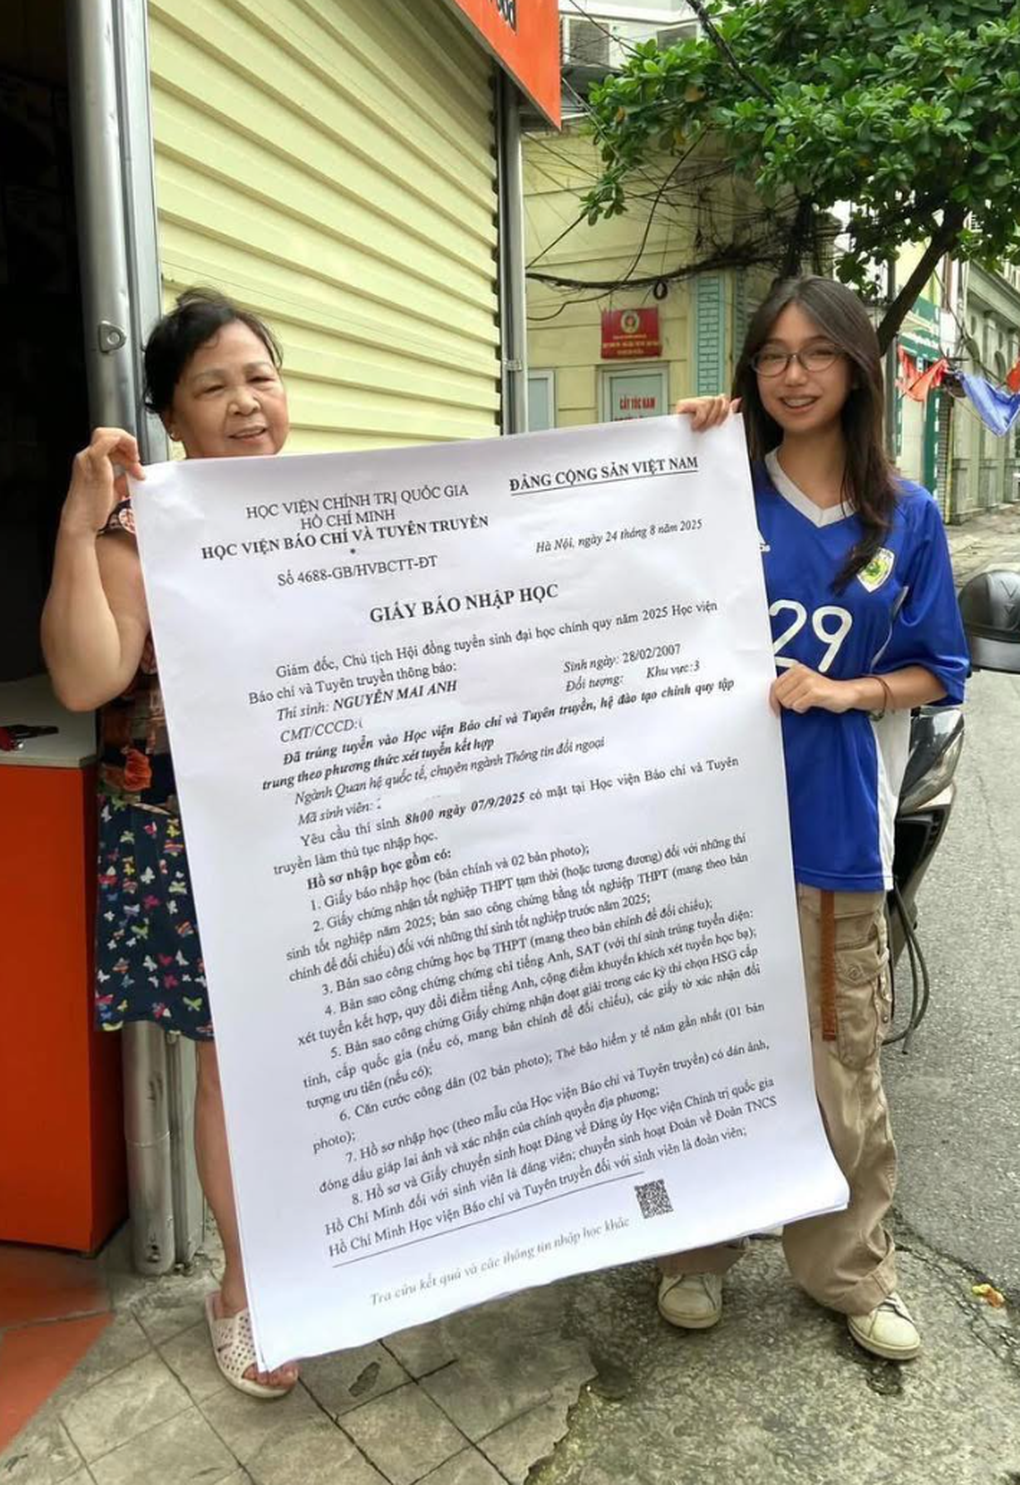 HỌC VIỆN CHÍNH TRỊ QUỐC GIA
HỒ CHÍ MINH
HỌC VIỆN BÁO CHÍ VÀ TUYÊN TRUYỀN
*
Số 4688-GB/HVBCTT-ĐT
ĐẢNG CỘNG SẢN VIỆT NAM
Hà Nội, ngày 24 tháng 8 năm 2025
GIẤY BÁO NHẬP HỌC
Giám đốc, Chủ tịch Hội đồng tuyển sinh đại học chính quy năm 2025 Học viện
Báo chí và Tuyên truyền thông báo:
Thí sinh: NGUYỄN MAI ANH
Sinh ngày: 28/02/2007
CMT/CCCD:
Đối tượng: Khu vực:3
Đã trúng tuyển vào Học viện Báo chí và Tuyên truyền, hệ đào tạo chính quy tập
trung theo phương thức xét tuyển kết hợp
Ngành Quan hệ quốc tế, chuyên ngành Thông tin đối ngoại
Mã sinh viên:
Yêu cầu thí sinh 8h00 ngày 07/9/2025 có mặt tại Học viện Báo chí và Tuyên
truyền làm thủ tục nhập học.
Hồ sơ nhập học gồm có:
1. Giấy báo nhập học (bản chính và 02 bản photo);
2. Giấy chứng nhận tốt nghiệp THPT tạm thời (hoặc tương đương) đối với những thí
sinh tốt nghiệp năm 2025; bản sao công chứng bằng tốt nghiệp THPT (mang theo bản
chính để đối chiếu) đối với những thí sinh tốt nghiệp trước năm 2025;
3. Bản sao công chứng học bạ THPT (mang theo bản chính để đối chiếu);
4. Bản sao công chứng chứng chỉ tiếng Anh, SAT (với thí sinh trúng tuyển diện:
xét tuyển kết hợp, quy đổi điểm tiếng Anh, cộng điểm khuyến khích xét tuyển học bạ);
5. Bản sao công chứng Giấy chứng nhận đoạt giải trong các kỳ thi chọn HSG cấp
tỉnh, cấp quốc gia (nếu có, mang bản chính để đối chiếu), các giấy tờ xác nhận đối
tượng ưu tiên (nếu có);
6. Căn cước công dân (02 bản photo); Thẻ bảo hiểm y tế năm gần nhất (01 bản
photo);
7. Hồ sơ nhập học (theo mẫu của Học viện Báo chí và Tuyên truyền) có dán ảnh,
đóng dấu giáp lai ảnh và xác nhận của chính quyền địa phương;
8. Hồ sơ và Giấy chuyển sinh hoạt Đảng về Đảng ủy Học viện Chính trị quốc gia
Hồ Chí Minh đối với sinh viên là đảng viên; chuyển sinh hoạt Đoàn về Đoàn TNCS
Hồ Chí Minh Học viện Báo chí và Tuyên truyền đối với sinh viên là đoàn viên;
Tra cứu kết quả và các thông tin nhập học khác
29
CẮT TÓC NAM